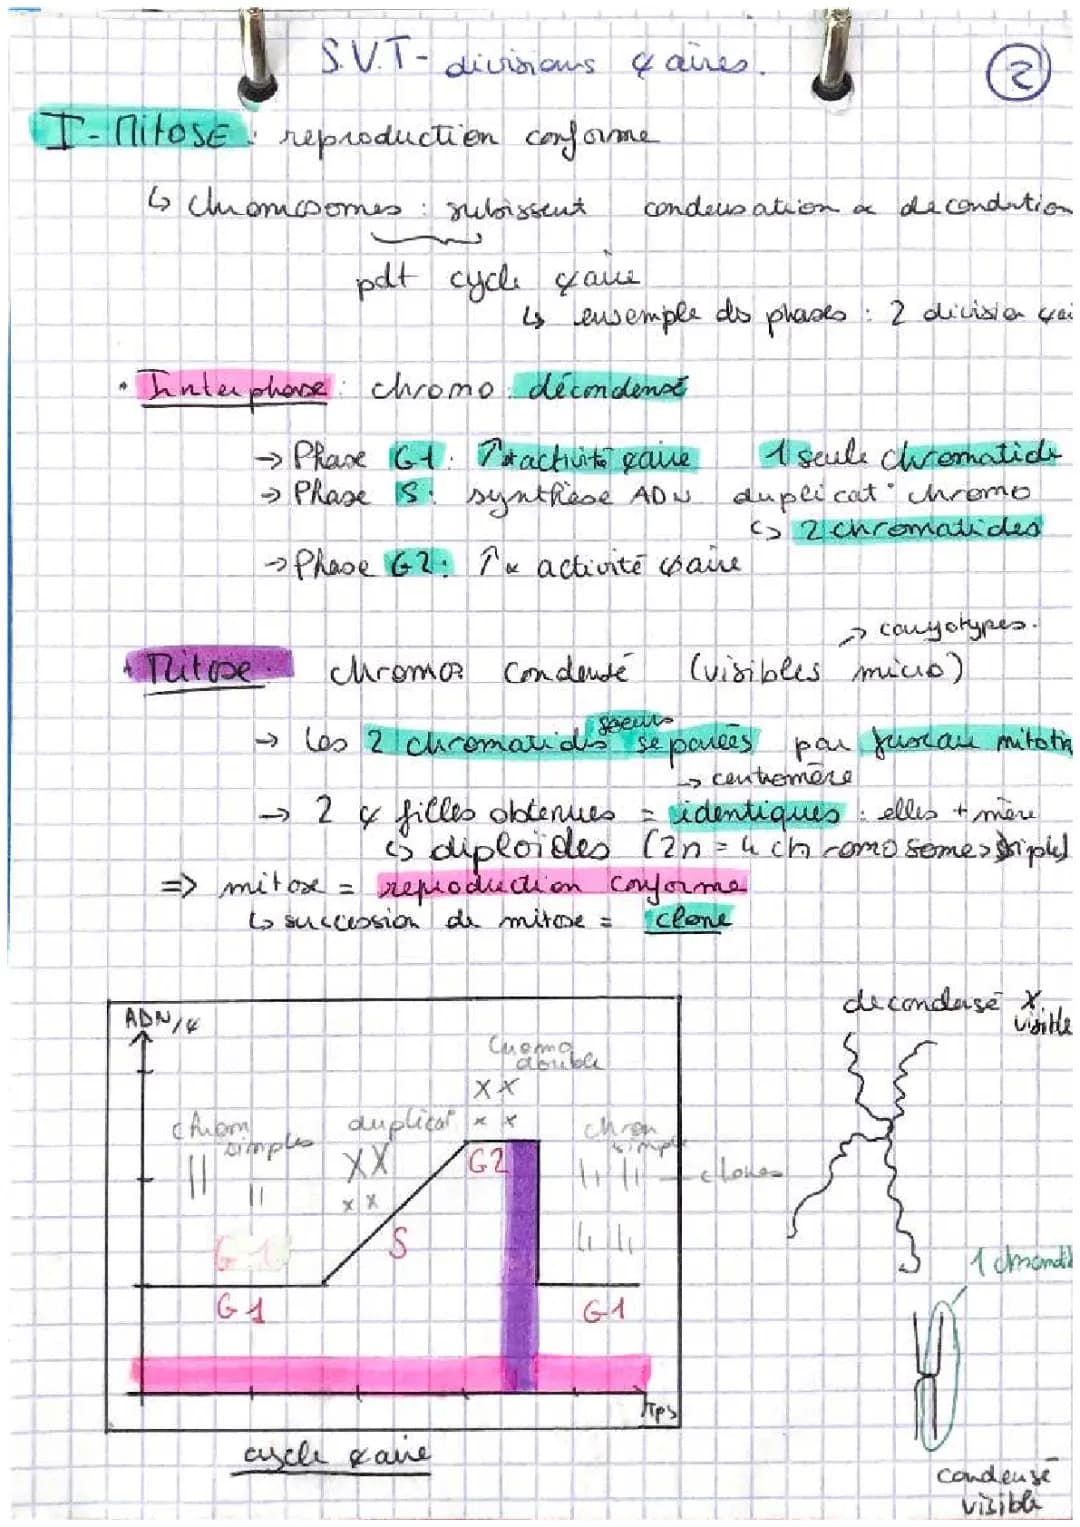 S.V.T - divisions ȼaires.
2
I - Mitose : reproduction conforme
↳ Chromosomes : subissent condensation & decondation
pdt cycle ȼaire
↳ ensemple ds phases : 2 division ȼai
• Interphase : chromo : décondensé
→ Phase G1 : ↗ activité ȼaire 1 seule chromatide
→ Phase S : synthèse ADN duplicat° chromo
↳ 2 chromatides
→ Phase G2 : ↗ activité ȼaire
→ caryotypes.
• Mitose . chromos condensé (visibles micro)
→ Les 2 chromatides soeurs separées par fuseau mitotiq
→ centromère
→ 2 ȼ filles obtenues = identiques : elles + mère
↳ diploïdes (2n = 4 chromosomes simples)
=> mitose = reproduction conforme
↳ succession de mitose = clone
decondensé X visible
ADN/ȼ
Chromo double
XX
xx
chrom simples
duplicat°
XX
xx
chrom simple
clones
G2
S
G1
G1
G1
Tps
cycle ȼaire
1 chromatide
condensé
visible